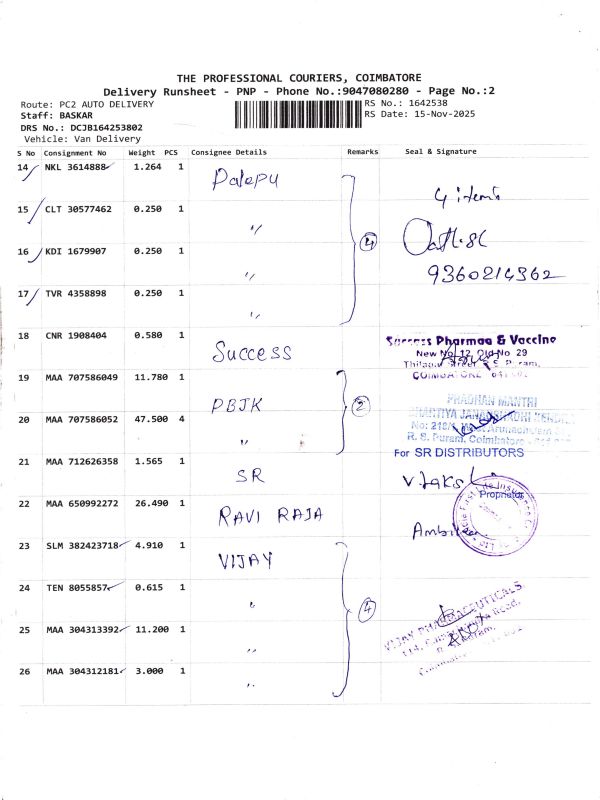 THE PROFESSIONAL COURIERS, COIMBATORE
Delivery Runsheet - PNP - Phone No.:9047080280 - Page No.:2
Route: PC2 AUTO DELIVERY
Staff: BASKAR
DRS No.: DCJB164253802
Vehicle: Van Delivery
RS No.: 1642538
RS Date: 15-Nov-2025
S No Consignment No Weight PCS Consignee Details Remarks Seal & Signature
14 NKL 3614888 1.264 1 Palepu
15 CLT 30577462 0.250 1 〃
4 items
16 KDI 1679907 0.250 1 〃 4
9360214362
17 TVR 4358898 0.250 1 〃
18 CNR 1908404 0.580 1 Success
Success Pharmaa & Vaccine
New No 12, Old No 29
Street
COIMBATORE
19 MAA 707586049 11.780 1 PBJK 2
20 MAA 707586052 47.500 4 〃
PRADHAN MANTRI
BHARTIYA JANAUSHADHI KENDRA
R. S. Puram, Coimbatore
21 MAA 712626358 1.565 1 SR
For SR DISTRIBUTORS
Proprietor
22 MAA 650992272 26.490 1 RAVI RAJA
23 SLM 382423718 4.910 1 VIJAY
24 TEN 8055857 0.615 1 〃 4
VIJAY PHARMACEUTICALS
Road,
25 MAA 304313392 11.200 1 〃
26 MAA 304312181 3.000 1 〃